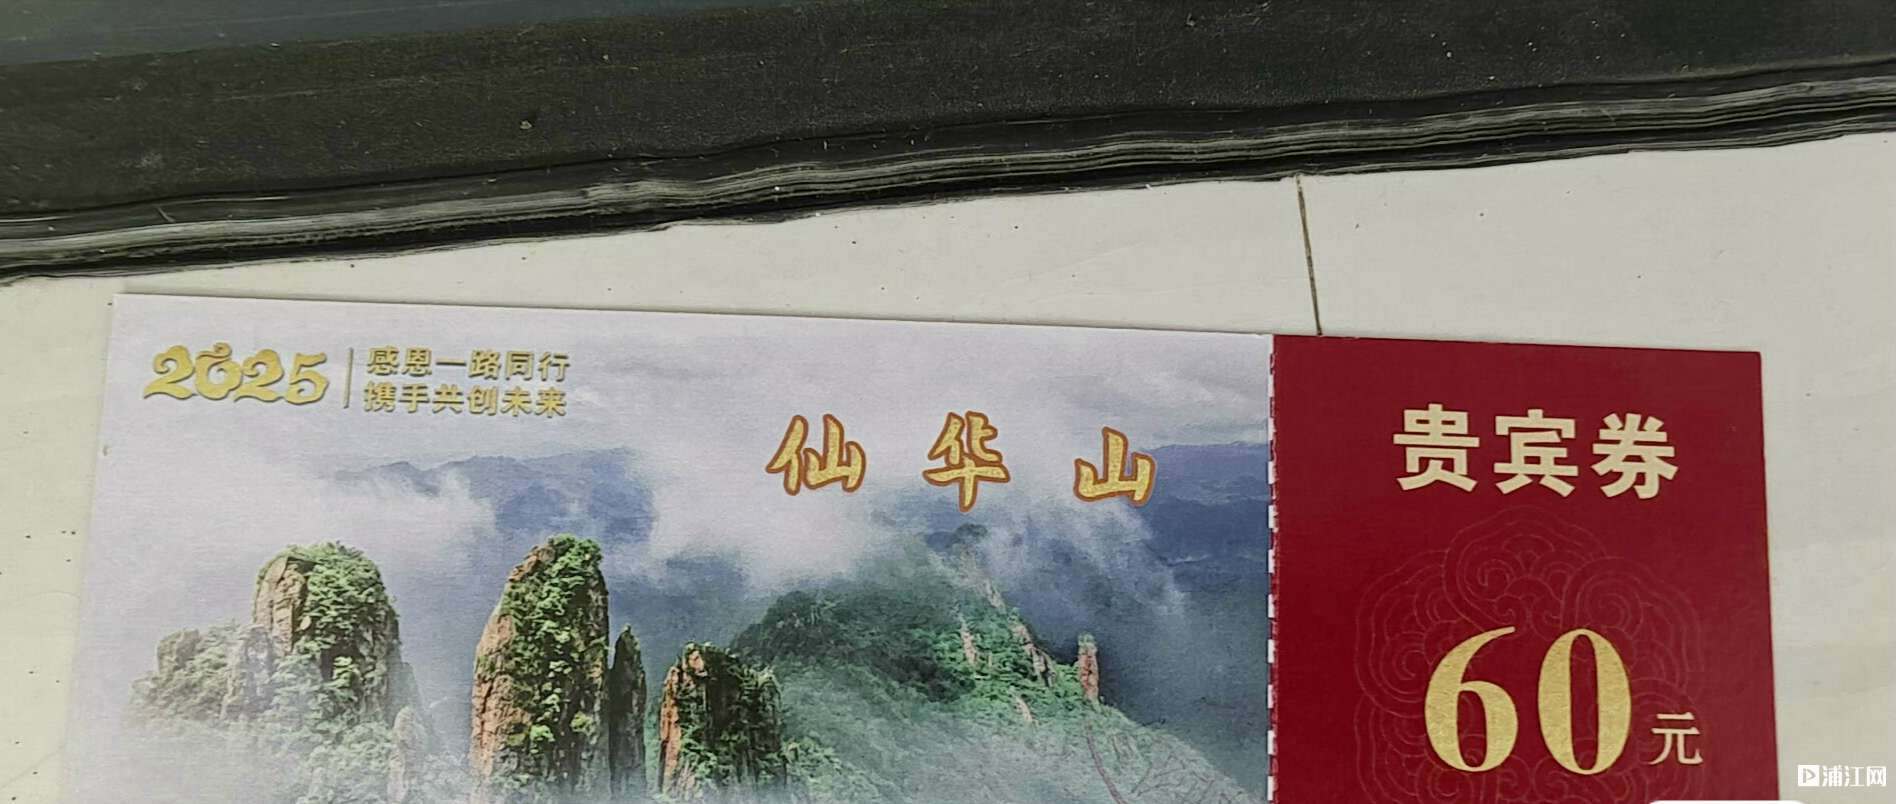 2025
感恩一路同行
携手共创未来
仙华山
贵宾券
60元
浦江网